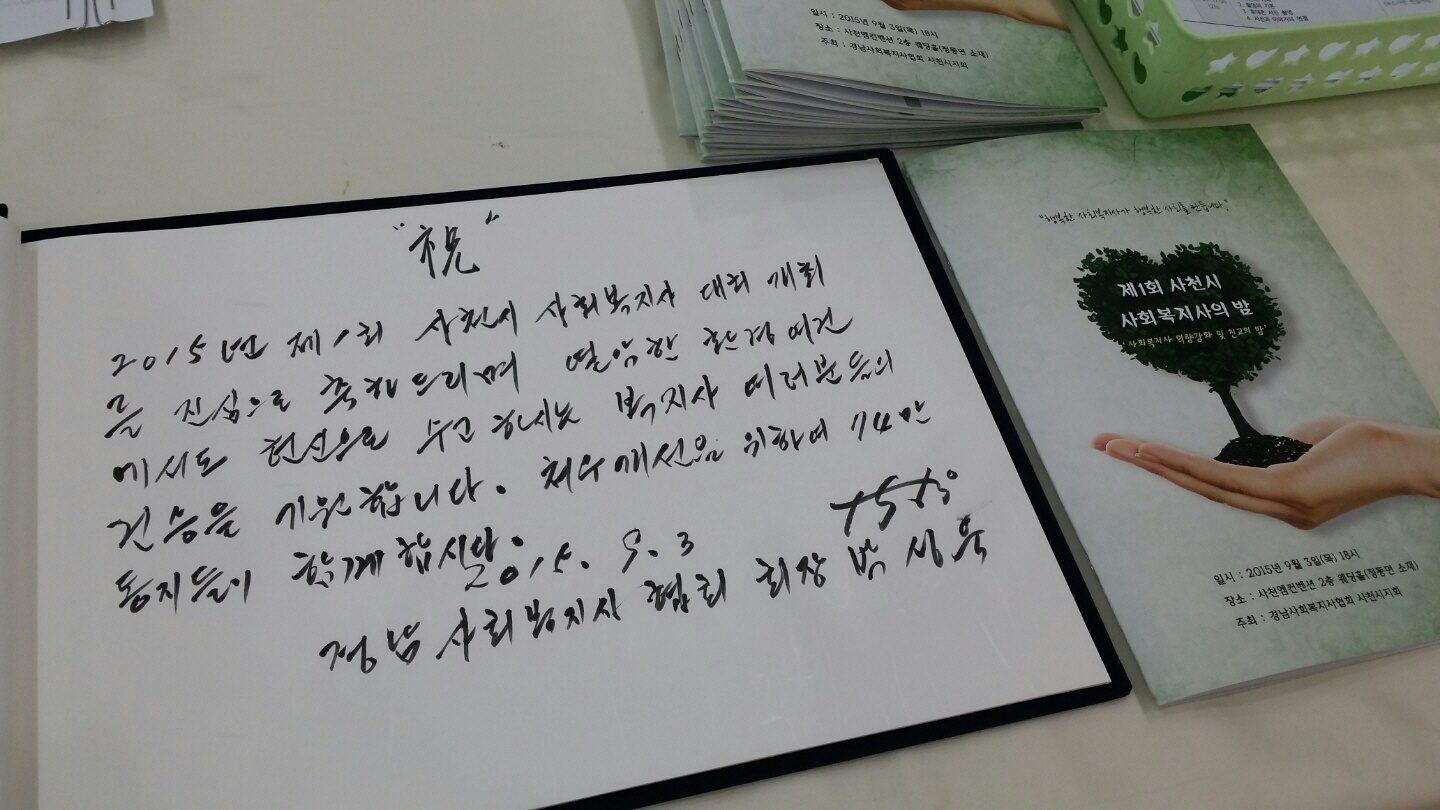 "祝"
2015년 제1회 사천시 사회복지사 대회 개회
를 진심으로 축하드리며 열암한 환경여건
에서도 헌신으로 수고하시는 복지사 여러분들의
건승을 기원합니다. 처우개선을 위하여 74만
동지들이 함께합시다.
2015. 9. 3
경남 사회복지사 협회 회장 박성욱
"행복한 사회복지사가 행복한 사회를 만듭니다"
제1회 사천시
사회복지사의 밤
'사회복지사 역량강화 및 친교의 밤'
일시 : 2015년 9월 3일(목) 18시
장소 : 사천엠컨벤션 2층 웨딩홀(정동면 소재)
주최 : 경남사회복지사협회 사천시지회
일시 : 2015년 9월 3일(목) 18시
장소 : 사천엠컨벤션 2층 웨딩홀(정동면 소재)
주최 : 경남사회복지사협회 사천시지회